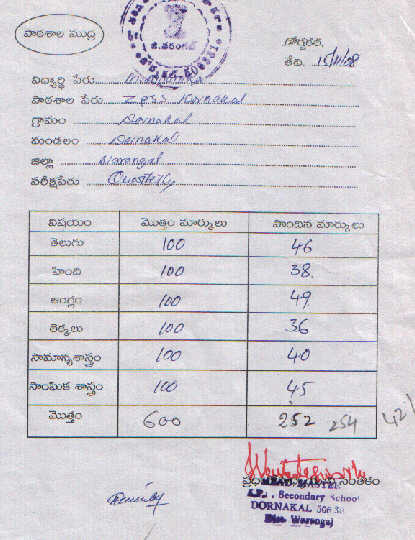 పాఠశాల ముద్ర
తేది. 15/11/08
విద్యార్థి పేరు
పాఠశాల పేరు ZPSS Dornakal
గ్రామం Dornakal
మండలం Dornakal
జిల్లా Warangal
పరీక్షపేరు Quarterly
విషయం మొత్తం మార్కులు సాధించిన మార్కులు
తెలుగు 100 46
హింది 100 38
ఇంగ్లీషు 100 49
లెక్కలు 100 36
సామాన్యశాస్త్రం 100 40
సాంఘిక శాస్త్రం 100 45
మొత్తం 600 252 254 42%
HEAD MASTER
Secondary School
DORNAKAL 506 38
Dist. Warangal